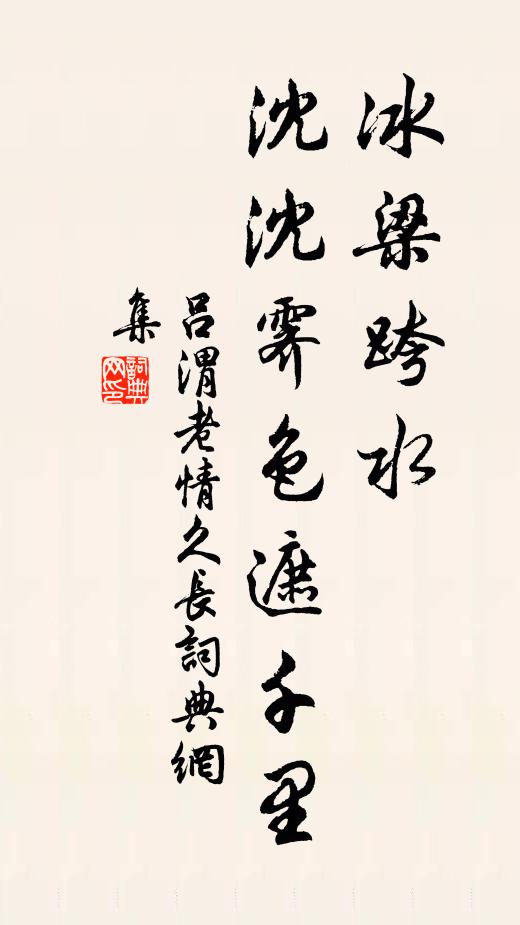 冰梁跨水
沈沈霽色遮千里
呂渭老情久長詞典網
集
詞典
网印